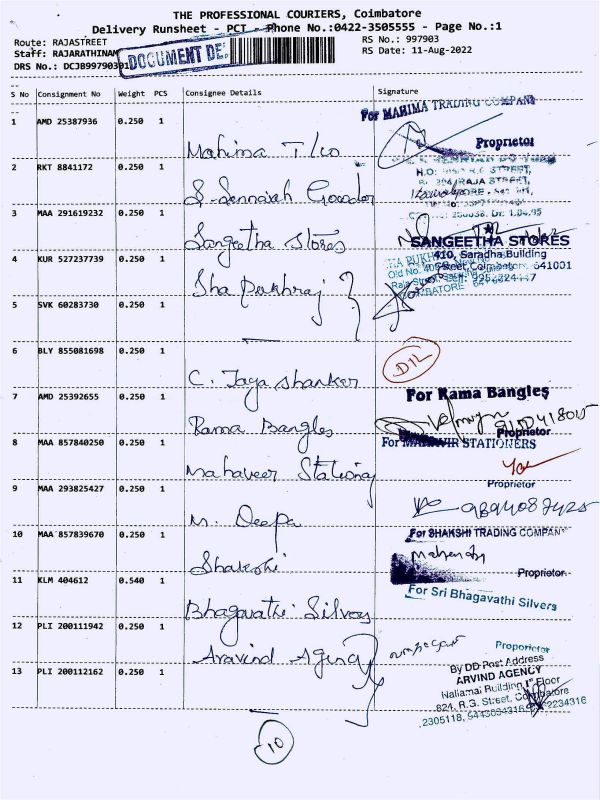 THE PROFESSIONAL COURIERS, Coimbatore
Delivery Runsheet - PCT - Phone No.:0422-3505555 - Page No.:1
Route: RAJASTREET RS No.: 997903
Staff: RAJARATHINAM RS Date: 11-Aug-2022
DRS No.: DCJB99790301
DOCUMENT DE
S No Consignment No Weight PCS Consignee Details Signature
1 AMD 25387936 0.250 1 Mahima T/co
For MAHIMA TRADING COMPANY
Proprietor
2 RKT 8841172 0.250 1 S. Sennaiah Gowder
H.O:
RAJA STREET,
3 MAA 291619232 0.250 1 Sangeetha Stores
SANGEETHA STORES
410, Saradha Building
4 KUR 527237739 0.250 1 Sha Pukhraj
Street, Coimbatore 641001
5 SVK 60283730 0.250 1
6 BLY 855081698 0.250 1 C. Jaya shanker
D/L
7 AMD 25392655 0.250 1 Rama Bangles
For Rama Bangles
Proprietor
8 MAA 857840250 0.250 1 Mahaveer Stationery
For MAHAVIR STATIONERS
Proprietor
9 MAA 293825427 0.250 1 M. Deepa
10 MAA 857839670 0.250 1 Shakshi
For SHAKSHI TRADING COMPANY
Proprietor
11 KLM 404612 0.540 1 Bhagavathi Silvers
For Sri Bhagavathi Silvers
Proporietor
12 PLI 200111942 0.250 1 Aravind Agency
13 PLI 200112162 0.250 1
By DD Post Address
ARVIND AGENCY
Nallamai Building 1st Floor
824, R.G. Street, Coimbatore
10